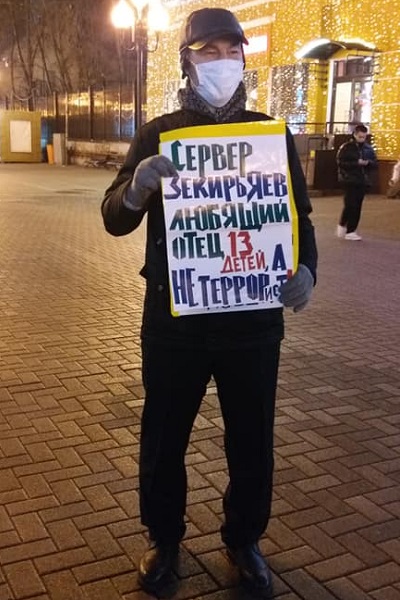 СЕРВЕР
ЗЕКИРЬЯЕВ
ЛЮБЯЩИЙ
ОТЕЦ 13
ДЕТЕЙ, А
НЕ ТЕРРОРИСТ!